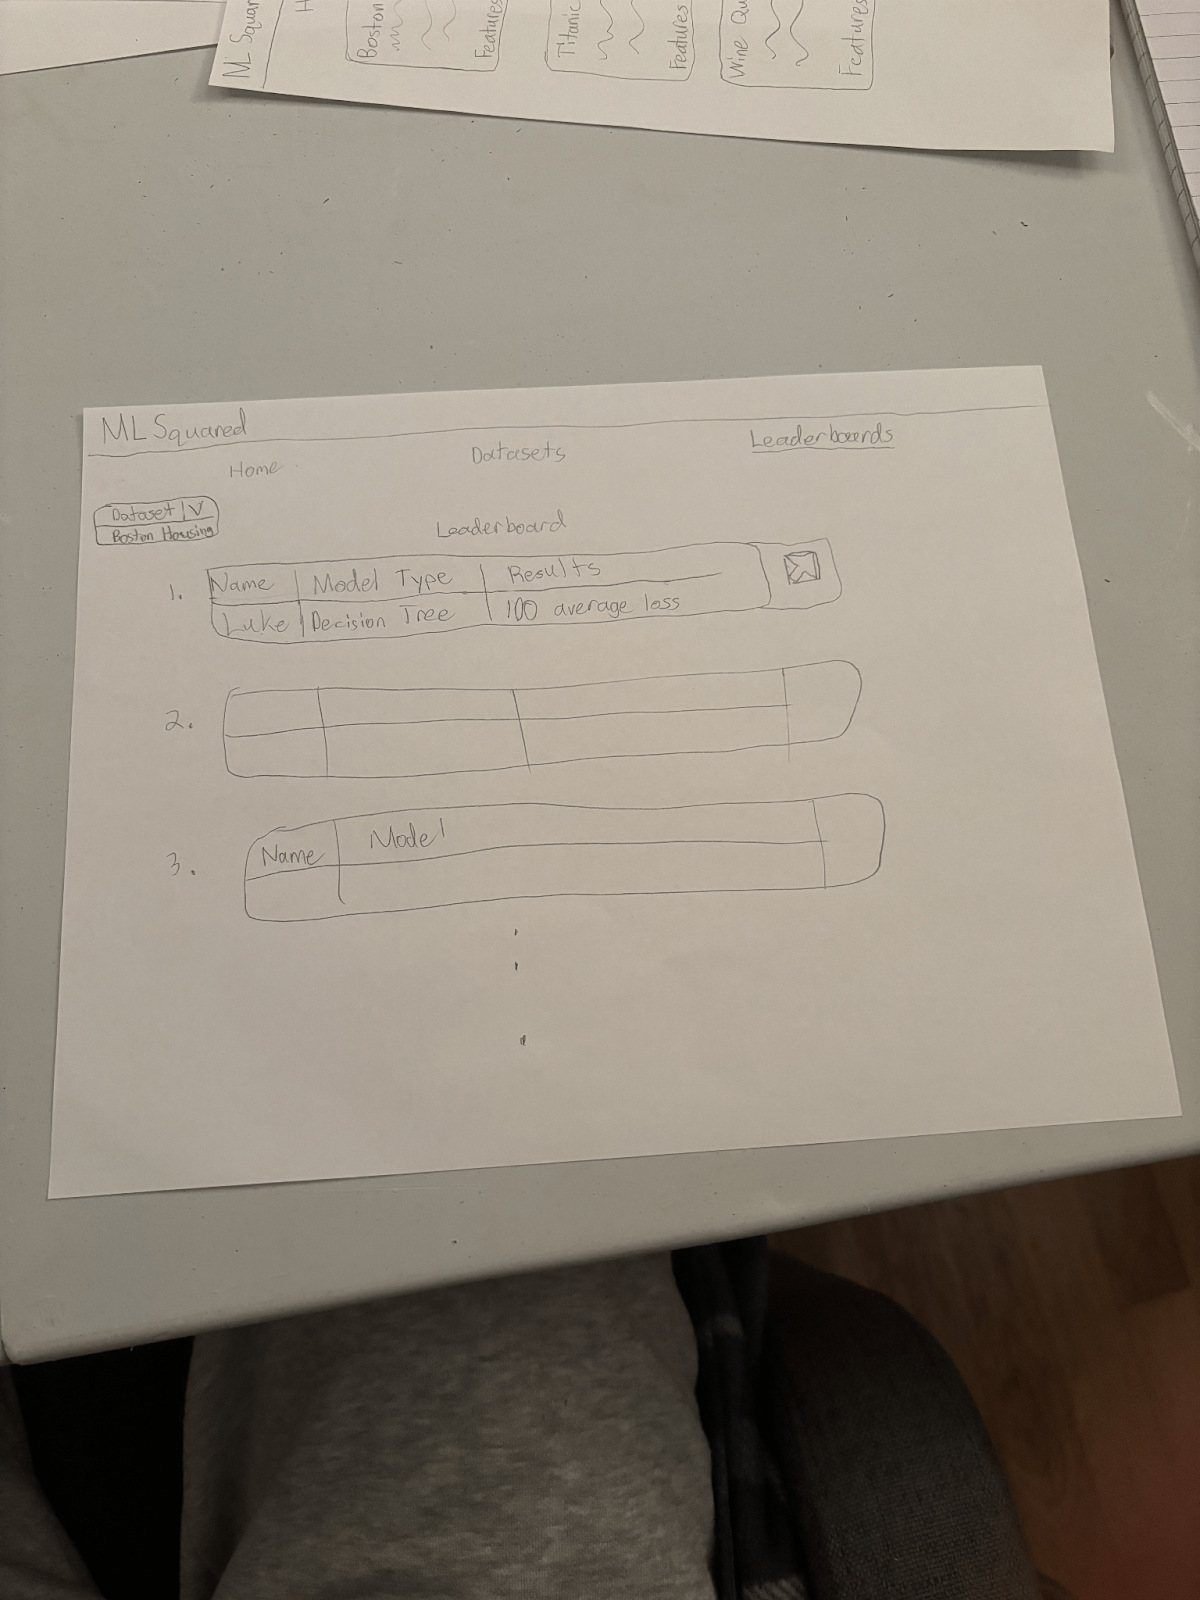 ML Squar
H
Boston
Features
Titanic
Features
Wine Qu
Features
ML Squared
Home
Datasets
Leaderboards
Dataset | V
Boston Housing
Leaderboard
1.
Name Model Type Results
Luke Decision Tree 100 average loss
2.
3.
Name Model